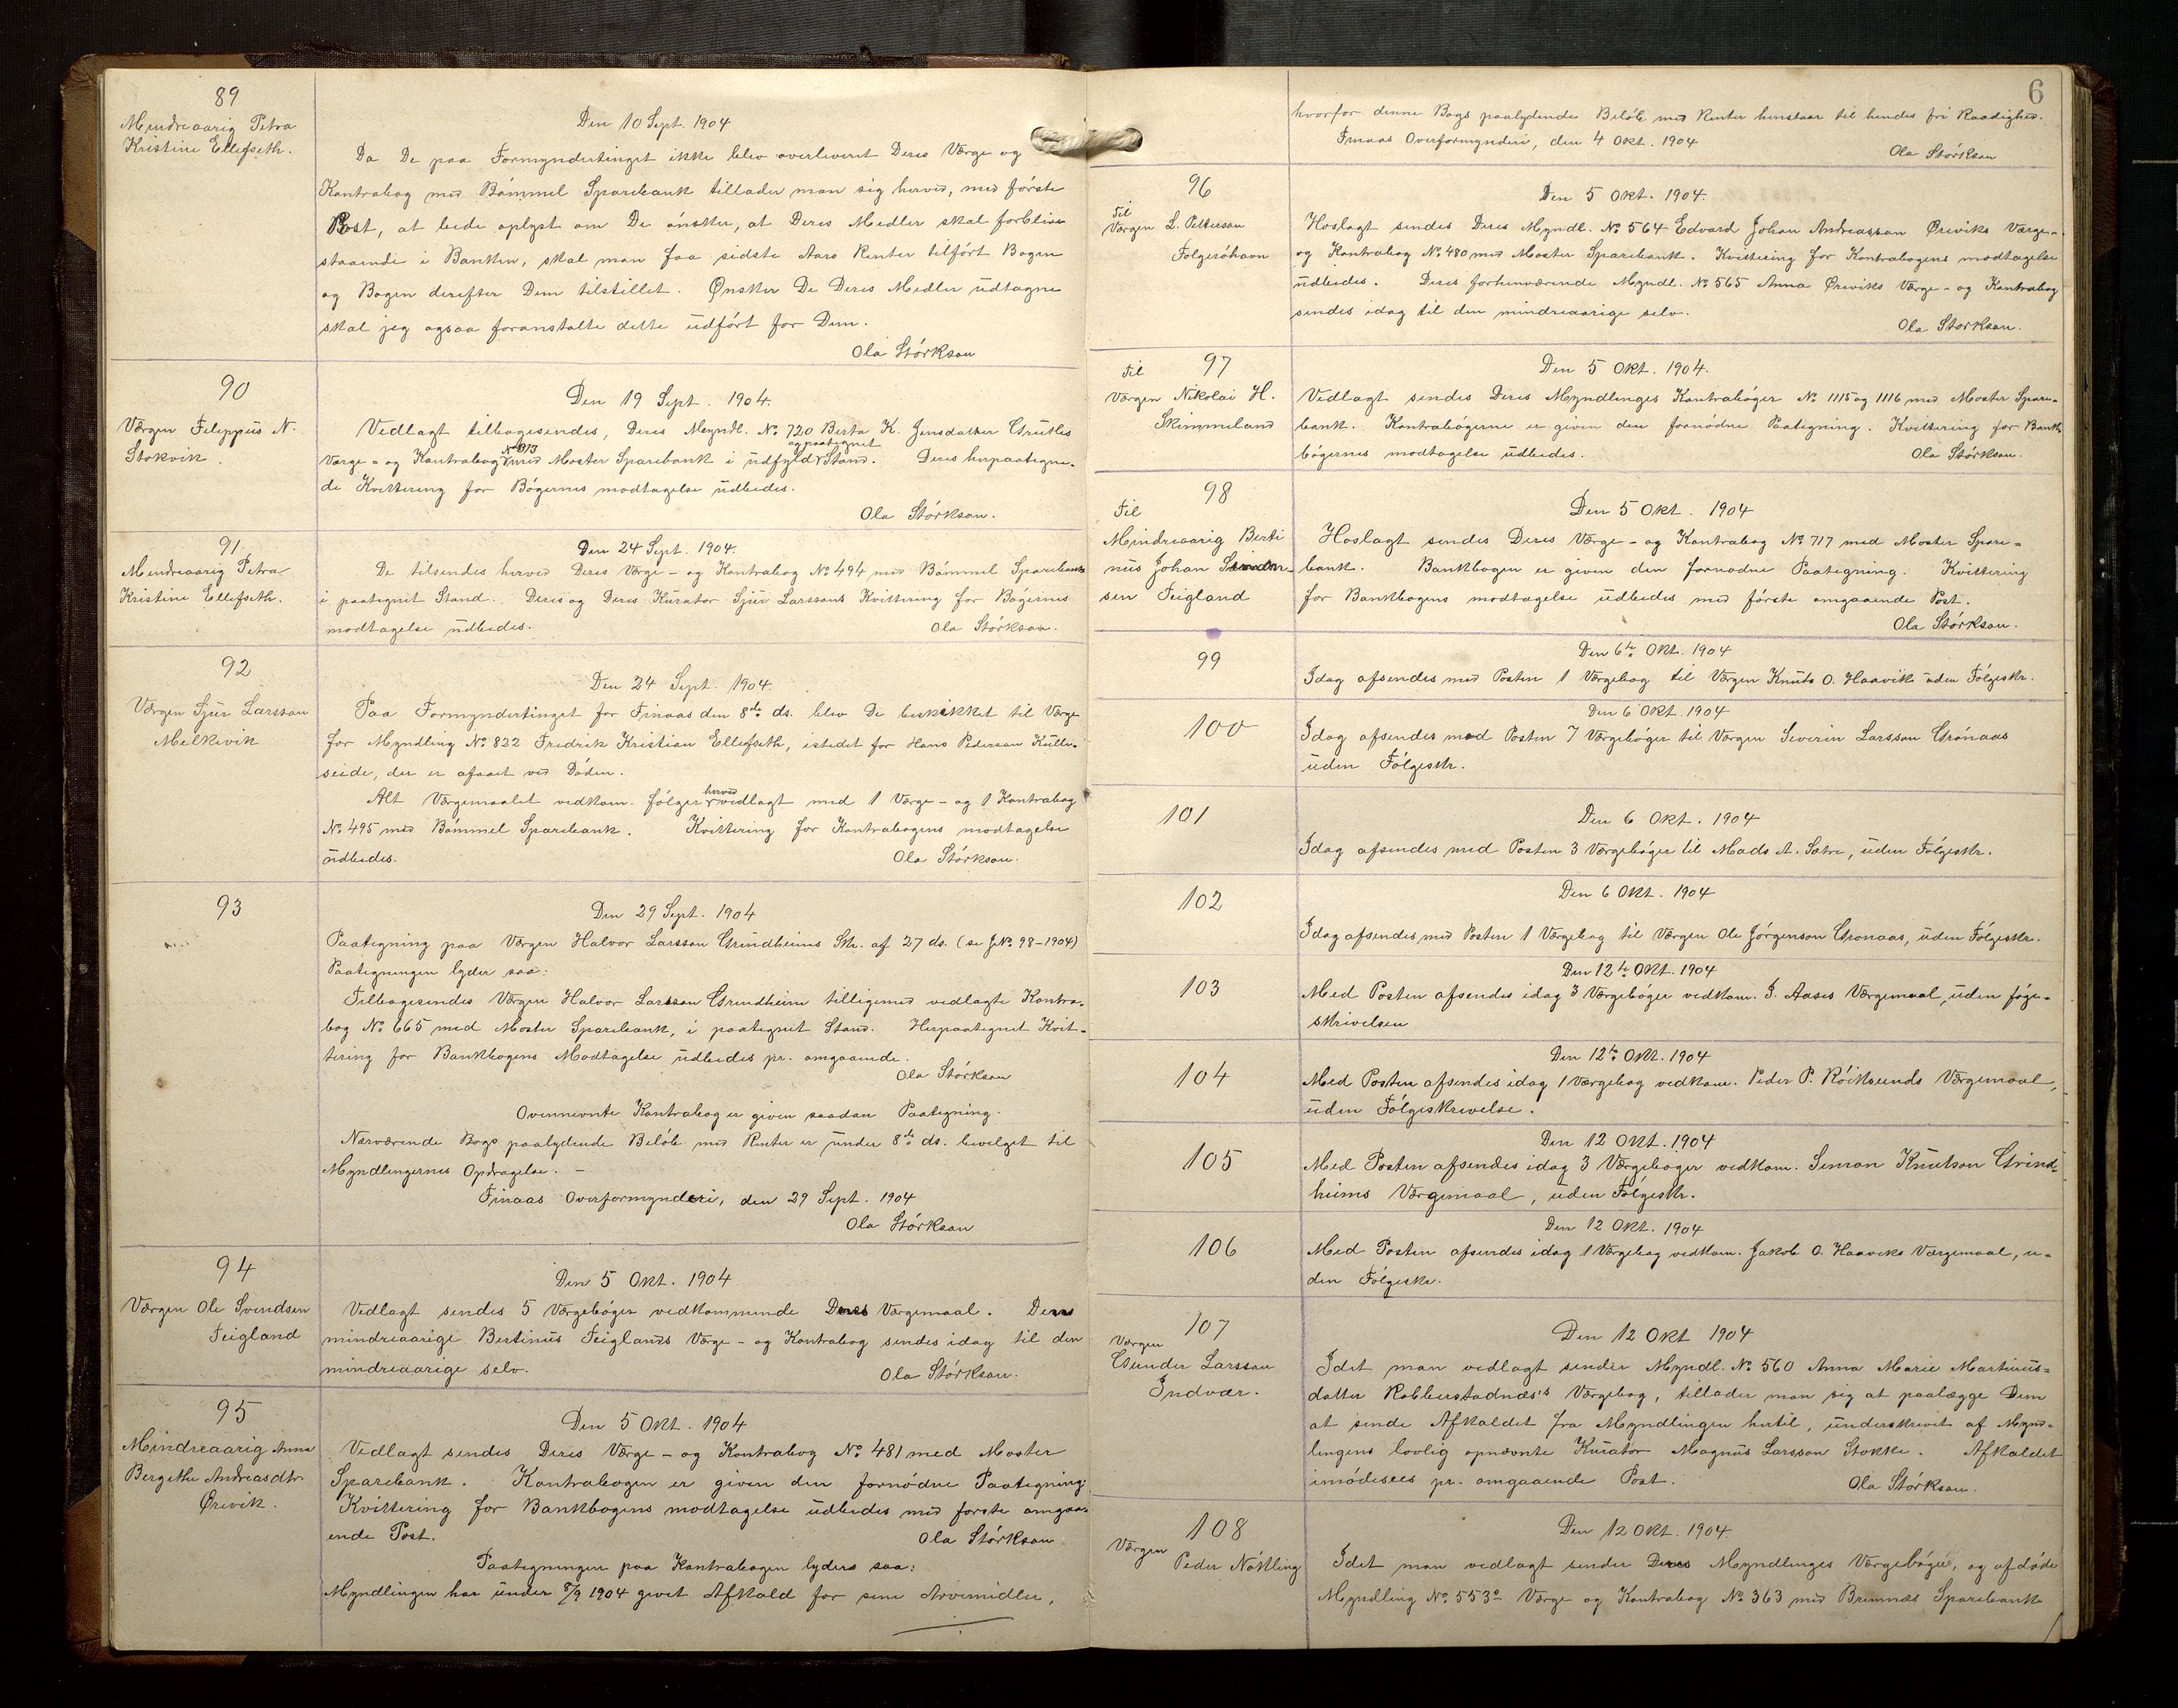 89
Mindreaarig Petra
Kristine Ellefseth.
Den 10 Sept. 1904
Da De paa Formyndertinget ikke blev overleveret Deres Værge og
Kontrabog med Bömmel Sparebank tillader man sig herved, med förste
Post, at bede oplyst om De önsker, at Deres Medler skal forblive
staaende i Banken, skal man faa sidste Aars Renter tilfört Bogen
og Bogen derefter Dem tilstillet. Ønsker De Deres Medler udtagne
skal jeg ogsaa foranstalte dette udfört for Dem.
Ola Störkson
90
Værgen Filippus N.
Stokvik.
Den 19 Sept. 1904.
Vedlagt tilbagesendes, Deres Myndl. No 720 Berta K. Jensdatter Grutles
Værge- og Kontrabog No 873 med Moster Sparebank i udfyld og paategnet Stand. Deres herpaategne-
de Kvittering for Bögernes modtagelse udbedes.
Ola Störkson.
91
Mindreaarig Petra
Kristine Ellefseth.
Den 24 Sept. 1904.
De tilsendes herved Deres Værge- og Kontrabog No 494 med Bömmel Sparebank
i paategnet Stand. Deres og Deres Kurator Sjur Larssons Kvittering for Bögernes
modtagelse udbedes.
Ola Störkson.
92
Værgen Sjur Larsson
Melkevik
Den 24 Sept. 1904.
Paa Formyndertinget for Finaas den 8de ds. blev De beskikket til Værge
for Myndling No 822 Fredrik Kristian Ellefseth, istedet for Hans Pederson Kulle-
seide, der er afgaaet ved Döden.
Alt Værgemaalet vedkom. fölger herved vedlagt med 1 Værge- og 1 Kontrabog
No 495 med Bömmel Sparebank. Kvittering for Kontrabogens modtagelse
udbedes.
Ola Störkson.
93
Den 29 Sept. 1904
Paategning paa Værgen Halvor Larsson Grindheims Skr. af 27 ds. (se J.No. 98-1904)
Paategningen lyder saa:
Tilbagesendes Værgen Halvor Larsson Grindheim tilligemed vedlagte Kontra-
bog No 665 med Moster Sparebank, i paategnet Stand. Herpaategnet Kvit-
tering for Bankbogens Modtagelse udbedes pr. omgaaende.
Ola Störkson
Ovennevnte Kontrabog er given saadan Paategning.
Nærværende Bogs paalydende Belöb med Renter er under 8de ds. bevilget til
Myndlingernes Opdragelse. -
Finaas Overformynderi, den 29 Sept. 1904
Ola Störkson
94
Værgen Ole Svendsen
Feigland
Den 5 Okt. 1904
Vedlagt sendes 5 Værgeböger vedkommende Deres Værgemaal. Den
mindreaarige Bertinus Feiglands Værge- og Kontrabog sendes idag til den
mindreaarige selv.
Ola Störkson.
95
Mindreaarig Anna
Bergithe Andreasdtr.
Ørevik.
Den 5 Okt. 1904
Vedlagt sendes Deres Værge- og Kontrabog No 481 med Moster
Sparebank. Kontrabogen er given den fornödne Paategning.
Kvittering for Bankbogens modtagelse udbedes med förste omgaa-
ende Post.
Ola Störkson
Paategningen paa Kontrabogen lyder saa:
Myndlingen har under 8/9 1904 givet Afkald for sine Arvemidler,
6
hvorfor denne Bogs paalydende Belöb med Renter henstaar til hendes fri Raadighed.
Finaas Overformynderi, den 4 Okt. 1904
Ola Störkson
96
Til
Værgen L. Petterson
Folgeröhavn
Den 5 Okt. 1904.
Hoslagt sendes Deres Myndl. No 564 Edvard Johan Andreasson Øreviks Værge-
og Kontrabog No 480 med Moster Sparebank. Kvittering for Kontrabogens modtagelse
udbedes. Deres forhenværende Myndl. No 565 Anna Øreviks Værge- og Kontrabog
sendes idag til den mindreaarige selv.
Ola Störkson.
97
Til
Værgen Nikolai H.
Skimmeland
Den 5 Okt. 1904.
Vedlagt sendes Deres Myndlinges Kontraböger No 1115 og 1116 med Moster Spare-
bank. Kontrabögerne er given den fornödne Paategning. Kvittering for Bank-
bögernes modtagelse udbedes.
Ola Störkson.
98
Til
Mindreaarig Berti
nus Johan Svendsen
sen Feigland
Den 5 Okt. 1904
Hoslagt sendes Deres Værge- og Kontrabog No 717 med Moster Spare-
bank. Bankbogen er given den fornødne Paategning. Kvittering
for Bankbogens modtagelse udbedes med förste omgaaende Post.
Ola Störkson.
99
Den 6te Okt. 1904
Idag afsendes med Posten 1 Værgebog til Værgen Knut O. Haavik uden Fölgeskr.
100
Den 6 Okt. 1904
Idag afsendes med Posten 7 Værgeböger til Værgen Severin Larsson Grönaas
uden Fölgeskr.
101
Den 6 Okt. 1904
Idag afsendes med Posten 3 Værgeböger til Mads A. Sætre, uden Fölgeskr.
102
Den 6 Okt. 1904
Idag afsendes med Posten 1 Værgebog til Værgen Ole Jörgenson Gronaas, uden Fölgeskr.
103
Den 12te Okt. 1904
Med Posten afsendes idag 3 Værgeböger vedkom. J. Aases Værgemaal, uden föge-
skrivelsen
104
Den 12te Okt. 1904
Med Posten afsendes idag 1 Værgebog vedkom. Peder P. Röiksunds Værgemaal,
uden Fölgeskrivelse.
105
Den 12 Okt. 1904
Med Posten afsendes idag 3 Værgeboger vedkom. Simon Knutson Grind-
heims Værgemaal, uden Fölgeskr.
106
Den 12 Okt. 1904
Med Posten afsendes idag 1 Værgebog vedkom. Jakob O. Haaviks Værgemaal, u-
den Fölgeskr.
107
Værgen
Gunder Larsson
Indvær.
Den 12 Okt 1904
Idet man vedlagt sender Myndl. No 560 Anna Marie Martinus-
datter Robberstadnæs's Værgebog, tillader man sig at paalægge Dem
at sende Afkaldet fra Myndlingen hertil, underskrevet af Mynd-
lingens lovlig opnævnte Kurator Magnus Larsson Stokke. Afkaldet
imödesees pr. omgaaende Post.
Ola Störkson.
108
Værgen
Peder Nöttling
Den 12 Okt. 1904.
Idet man vedlagt sender Deres Myndlinges Værgeböger, og afdöde
Myndling No 553a Værge og Kontrabog No 363 med Bremnæs Sparebank